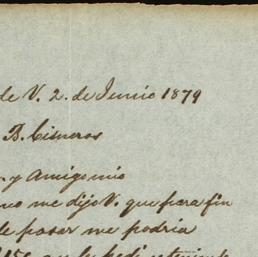 de V. 2. de Junio 1879
B. Cisneros
. y Amigo mio
no me dijo V. que para fin
de pasar me podria